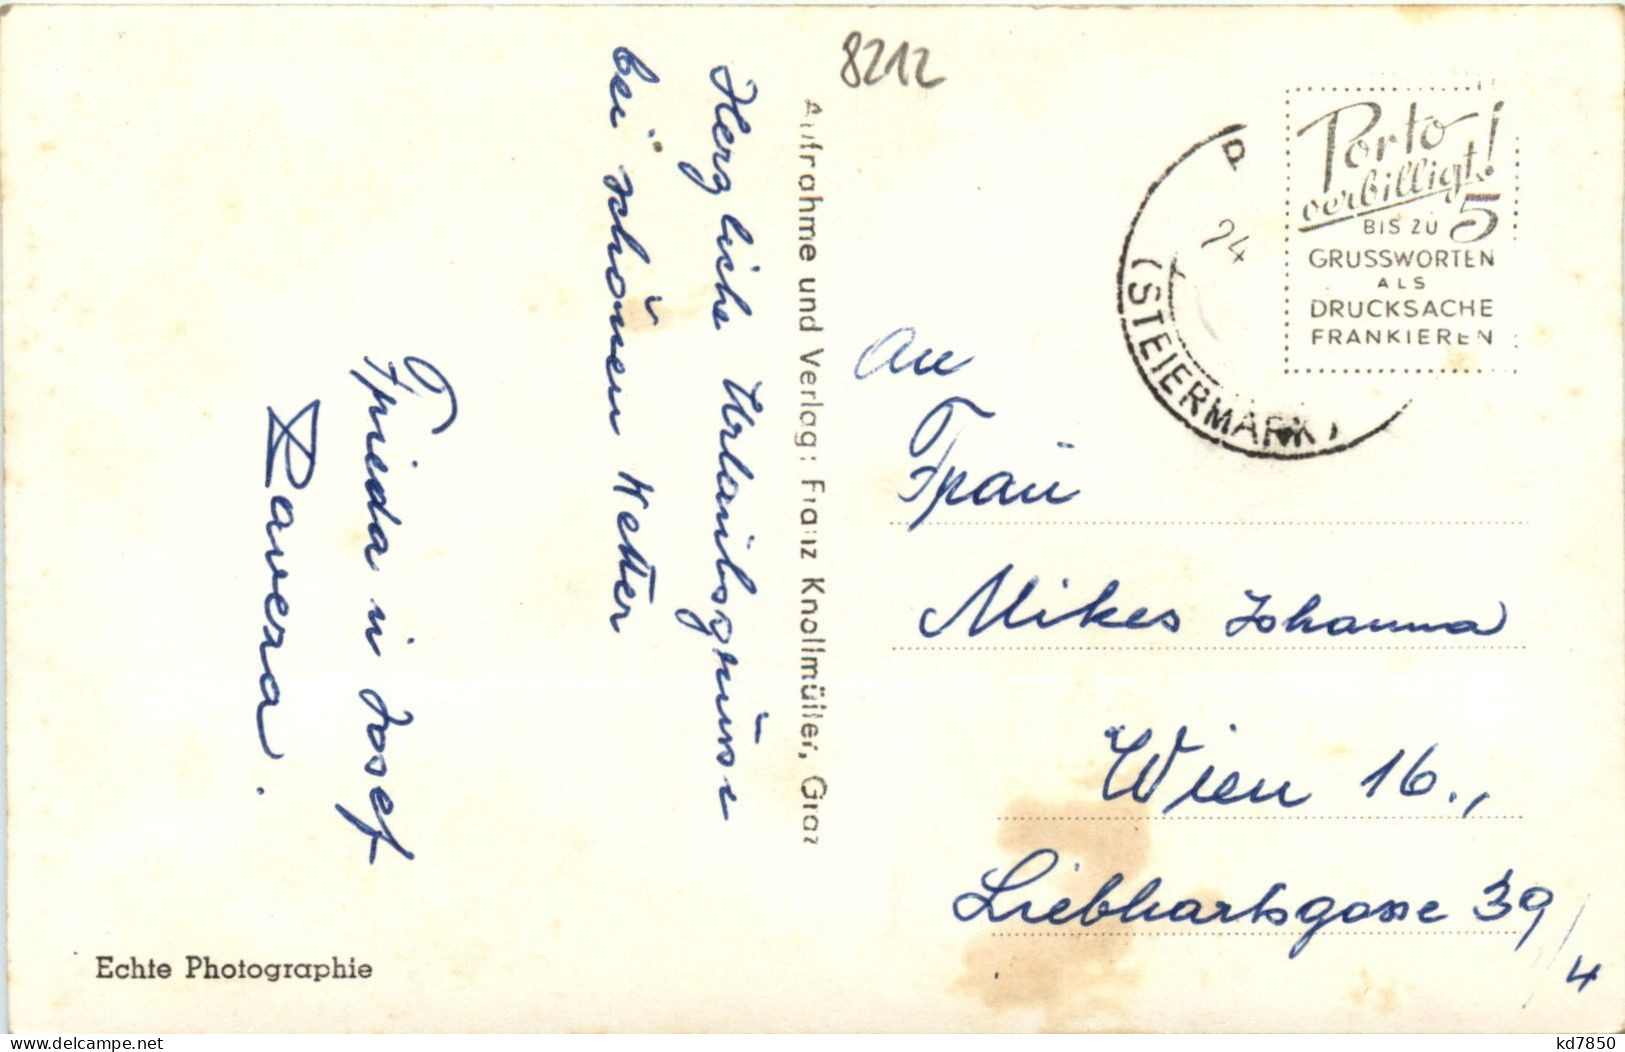 8212
Herzliche Urlaubsgrüsse
bei schönen Wetter
Frieda u Josef
Ravera.
Aufnahme und Verlag: Franz Knollmüller, Graz
Echte Photographie
Porto
verbilligt!
BIS ZU 5
GRUSSWORTEN
ALS
DRUCKSACHE
FRANKIEREN
P
24
(STEIERMARK)
An
Frau
Mikes Johanna
Wien 16.,
Liebhartsgasse 39/4
www.delcampe.net
kd7850